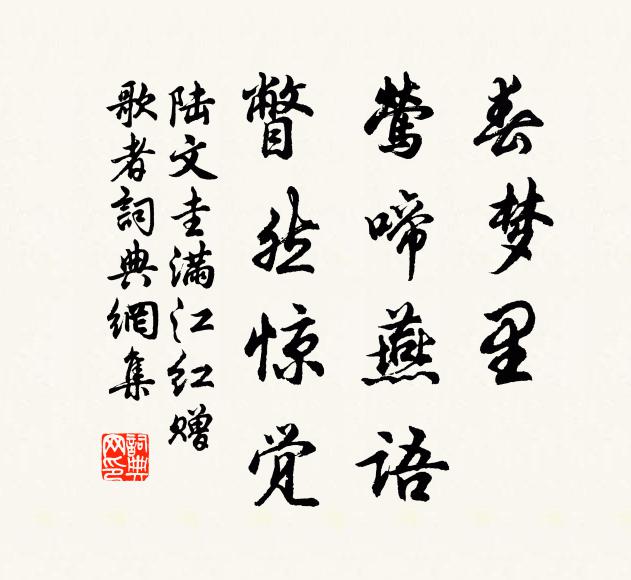 春梦里
莺啼燕语
瞥然惊觉
陆文圭满江红赠
歌者詞典網集
詞典网印